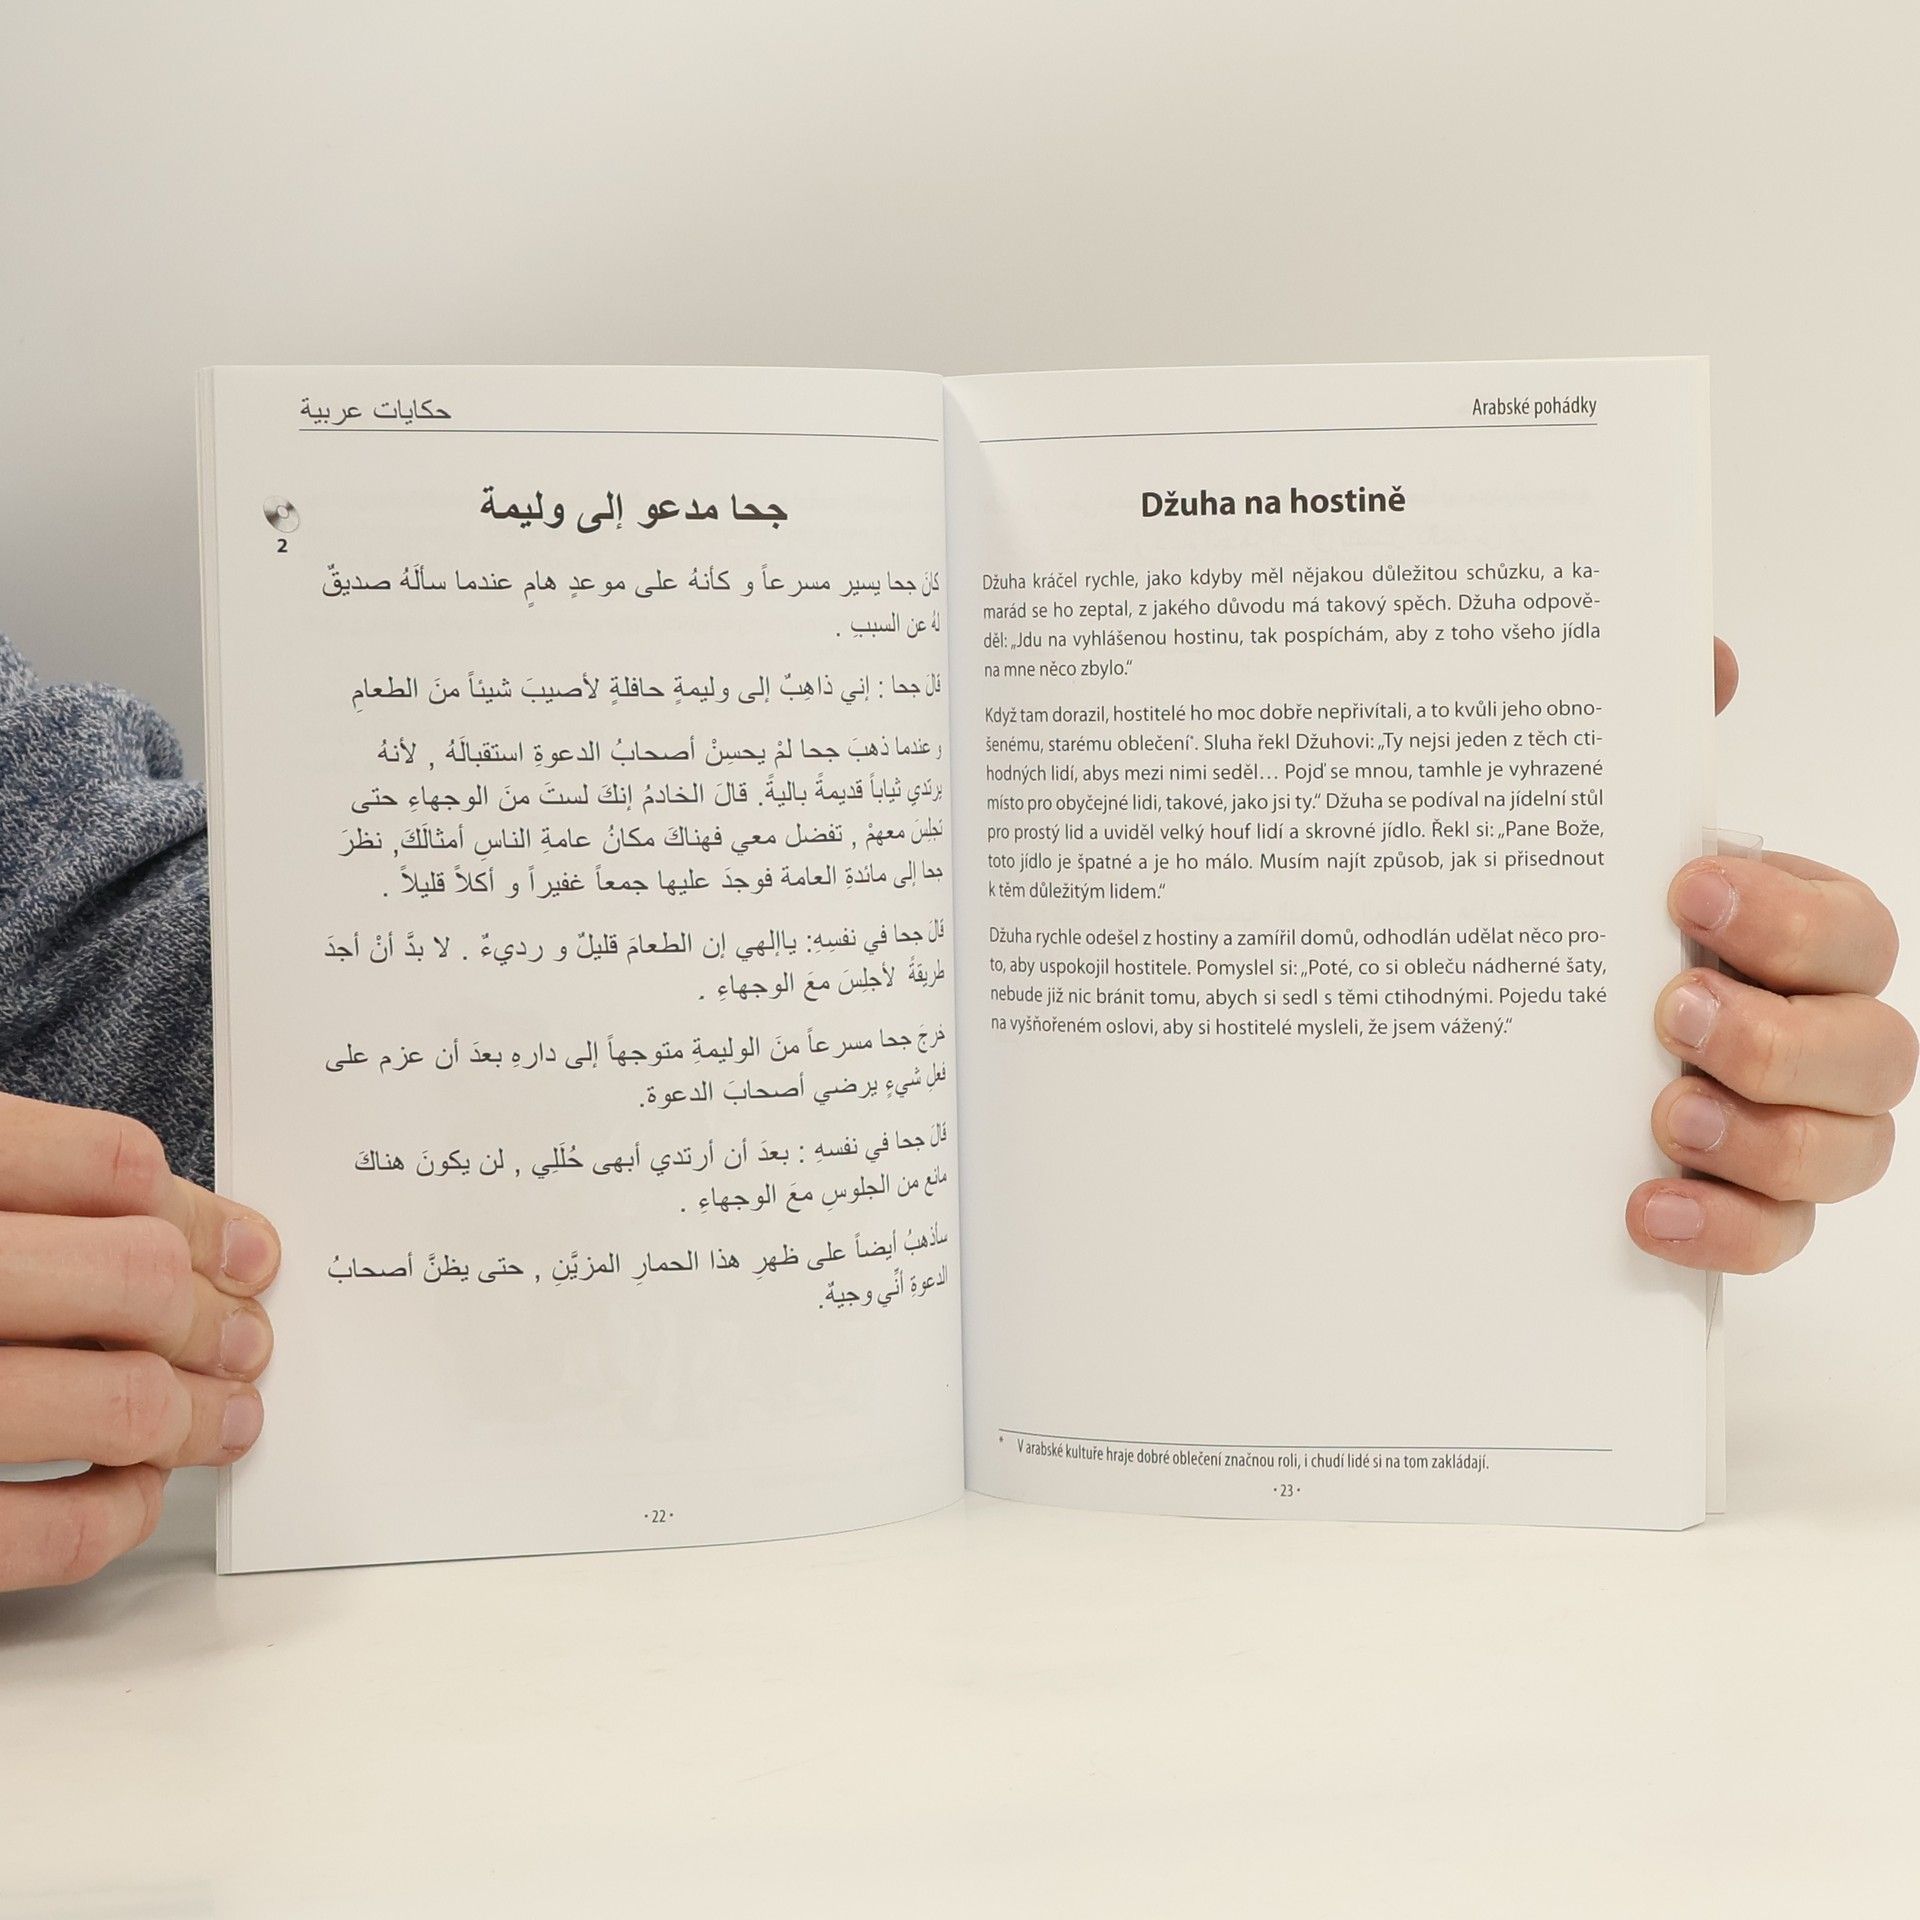 حكايات عربية
2
جحا مدعو إلى وليمة
كانَ جحا يسير مسرعاً و كأنهُ على موعدٍ هامٍ عندما سألَهُ صديقٌ
لهُ عن السببِ .
قالَ جحا : إني ذاهِبٌ إلى وليمةٍ حافلةٍ لأصيبَ شيئاً منَ الطعامِ
وعندما ذهبَ جحا لمْ يحسِنْ أصحابُ الدعوةِ استقبالَهُ , لأنهُ
يرتدي ثياباً قديمةً باليةً. قالَ الخادمُ إنكَ لستَ منَ الوجهاءِ حتى
تجلِسَ معهمْ , تفضل معي فهناكَ مكانُ عامةِ الناسِ أمثالَكَ, نظرَ
جحا إلى مائدةِ العامة فوجدَ عليها جمعاً غفيراً و أكلاً قليلاً .
قالَ جحا في نفسِهِ: ياإلهي إن الطعامَ قليلٌ و رديءٌ . لا بدَّ أنْ أجدَ
طريقةً لأجلِسَ معَ الوجهاءِ .
خرجَ جحا مسرعاً منَ الوليمةِ متوجهاً إلى دارهِ بعدَ أن عزم على
فعلِ شيءٍ يرضي أصحابَ الدعوة.
قالَ جحا في نفسهِ : بعدَ أن أرتدي أبهى حُلَلِي , لن يكونَ هناكَ
مانع من الجلوسِ معَ الوجهاءِ .
سأذهبُ أيضاً على ظهرِ هذا الحمارِ المزيَّنِ , حتى يظنَّ أصحابُ
الدعوةِ أنِّي وجيهٌ.
·22·
Arabské pohádky
Džuha na hostině
Džuha kráčel rychle, jako kdyby měl nějakou důležitou schůzku, a ka-
marád se ho zeptal, z jakého důvodu má takový spěch. Džuha odpově-
děl: „Jdu na vyhlášenou hostinu, tak pospíchám, aby z toho všeho jídla
na mne něco zbylo.“
Když tam dorazil, hostitelé ho moc dobře nepřivítali, a to kvůli jeho obno-
šenému, starému oblečení*. Sluha řekl Džuhovi: „Ty nejsi jeden z těch cti-
hodných lidí, abys mezi nimi seděl… Pojď se mnou, tamhle je vyhrazené
místo pro obyčejné lidi, takové, jako jsi ty.“ Džuha se podíval na jídelní stůl
pro prostý lid a uviděl velký houf lidí a skrovné jídlo. Řekl si: „Pane Bože,
toto jídlo je špatné a je ho málo. Musím najít způsob, jak si přisednout
k těm důležitým lidem.“
Džuha rychle odešel z hostiny a zamířil domů, odhodlán udělat něco pro-
to, aby uspokojil hostitele. Pomyslel si: „Poté, co si obleču nádherné šaty,
nebude již nic bránit tomu, abych si sedl s těmi ctihodnými. Pojedu také
na vyšňořeném oslovi, aby si hostitelé mysleli, že jsem vážený.“
* V arabské kultuře hraje dobré oblečení značnou roli, i chudí lidé si na tom zakládají.
·23·